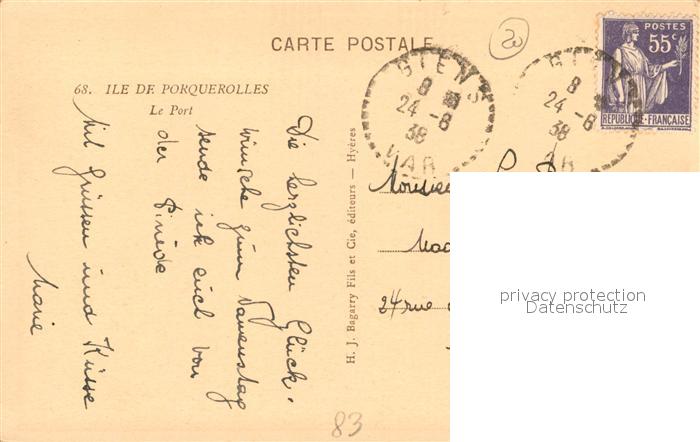 CARTE POSTALE
20
POSTES
55c
REPUBLIQUE-FRANÇAISE
GIENS
8
24-8
38
VAR
8
24-8
38
68. ILE DE PORQUEROLLES
Le Port
Die herzlichsten Glück-
wünsche zum Namenstag
sende ich euch von
der Pinède
Mit Grüssen und Küsse
Marie
H. J. Bagarry Fils et Cie, éditeurs — Hyères
Monsieur
24 rue
privacy protection
Datenschutz
83